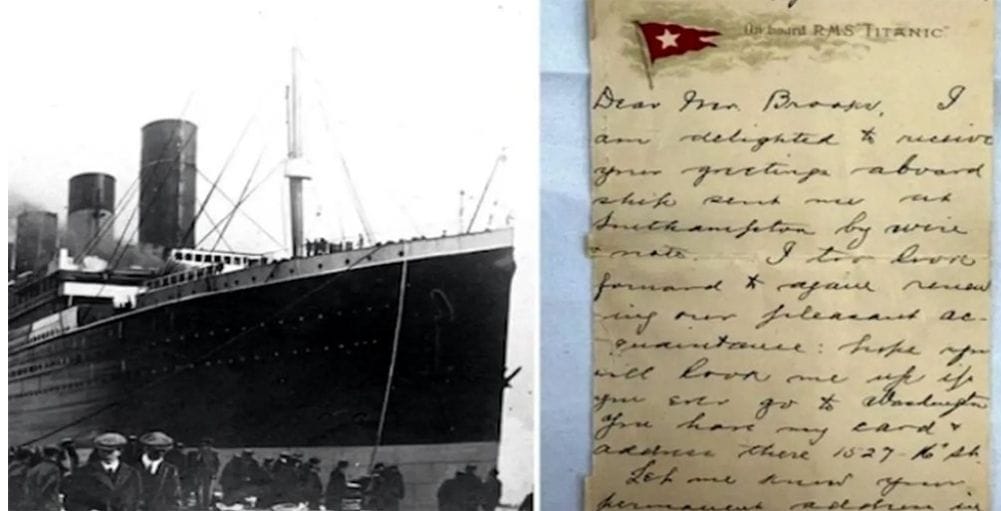 On board R.M.S "TITANIC"
Dear Mr. Brooks, I
am delighted to receive
your greetings aboard
ship sent me at
Southampton by wire
note. I too look
forward to again renew
ing our pleasant ac-
quaintance: hope you
will look me up if
you ever go to Washington
You have my card &
address there 1527-16" St.
Let me know your
permanent address in